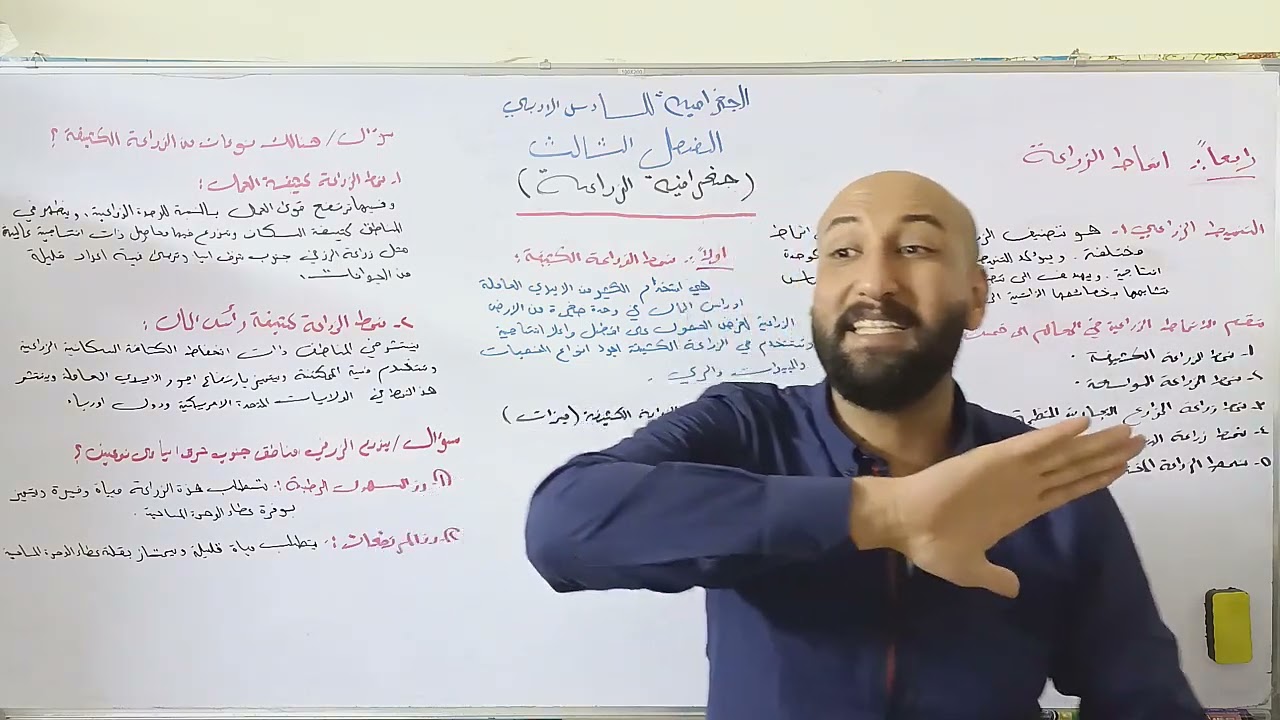 الجغرافية للسادس الادبي
الفصل الثالث
(جغرافية الزراعة)
رابعاً: انماط الزراعة
التنميط الزراعي ١- هو تصنيف
انماط
مختلفة . ويولد
كوحدة
انتاجية . ويهدف الى
اساس
تشابهها بخصائصها الذاتية
تقسم الانماط الزراعية في العالم الى
١- نمط الزراعة الكثيفة .
٢- نمط الزراعة الواسعة .
٣- نمط زراعة المزارع التجارية
٤- نمط زراعة
٥- نمط الزراعة
اولاً :. نمط الزراعة الكثيفة :
هي استخدام الكثير من الايدي العاملة
او راس المال في وحدة صغيرة من الارض
الزراعية لغرض الحصول على افضل واعلى انتاجية
وتستخدم في الزراعة الكثيفة اجود انواع المخصبات
والمبيدات والري .
الكثيفة (ميزات)
سؤال / هنالك نوعان من الزراعة الكثيفة ؟
١- نمط الزراعة كثيفة العمل :
وفيها ترتفع قوى العمل بالنسبة للوحدة الزراعية ، ويظهر في
المناطق كثيفة السكان وتزرع فيها محاصيل ذات انتاجية عالية
مثل زراعة الرز في جنوب شرق اسيا وتربى فيه اعداد قليلة
من الحيوانات .
٢- نمط الزراعة كثيفة رأس المال :
ينتشر في المناطق ذات انخفاض الكثافة السكانية الزراعية
وتستخدم فيه المكننة ويتميز بارتفاع اجور الايدي العاملة وينتشر
هذا النمط في الولايات المتحدة الامريكية ودول اوربا .
سؤال / يزرع الرز في مناطق جنوب شرق اسيا على نوعين ؟
١. رز السهول الرطبة : تتطلب هذه الزراعة مياة وفيرة ويتميز
بوفرة عطاء الوحدة المساحية .
٢. رز المرتفعات : يتطلب مياة قليلة ويمتاز بقلة عطاء الوحدة المساحية